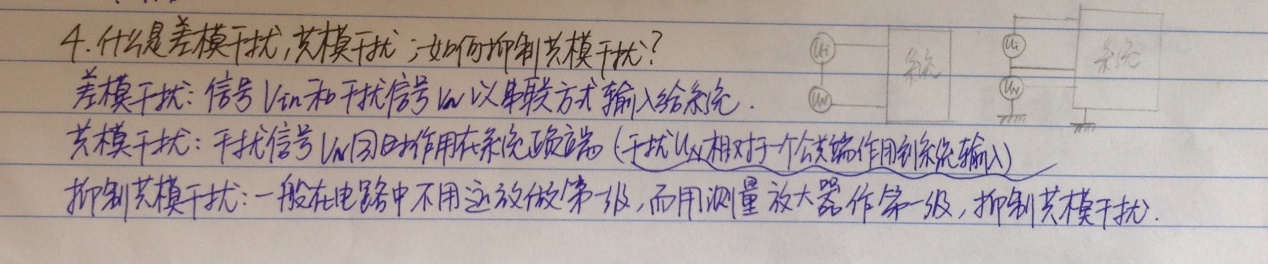 4.什么是差模干扰,共模干扰;如何抑制共模干扰?
差模干扰:信号Vin和干扰信号VN以串联方式输入给系统.
共模干扰:干扰信号VN同时作用在系统两端(干扰UN相对于一个公共端作用到系统输入)
抑制共模干扰:一般在电路中不用运放做第一级,而用测量放大器作第一级,抑制共模干扰.
Ui
UN
系统
Ui
UN
系统